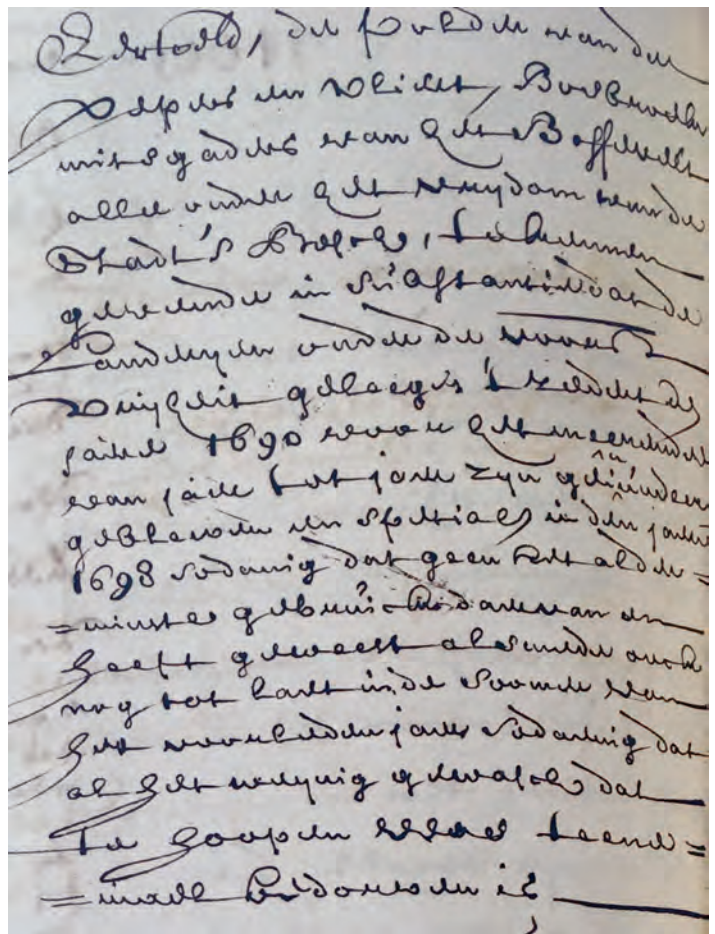 de polder van der
en Vliert,
mitsgaders van het
alle onder het vrijdom van de
Stadt 's Bosch, te kennen
gevende in substantie dat de
Landerijen onder de voors
vrijheit gelegen 't zedert de
jaere 1690 voor het meerendeel
van jaer tot jaer zijn geinundeert
gebleven en spetiael in den jaere
1698 sodanig dat geen het alder=
=minste gebruick daer van en
heeft geweest alsmede ock
nog tot laet inde soomer van
het voorleden jaer sodanig dat
al het weynig gewasch dat
te hoopen was teene=
=mael bedorven is